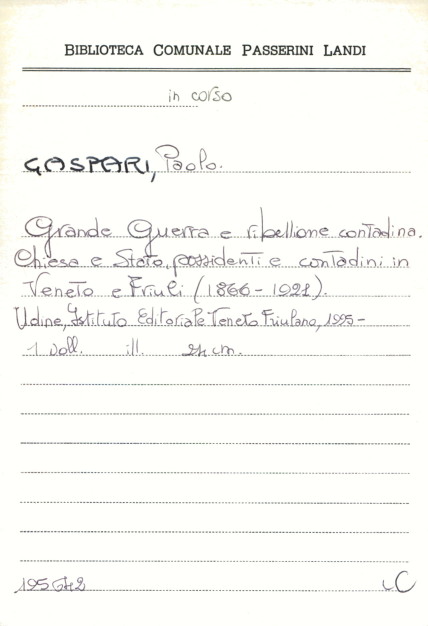 BIBLIOTECA COMUNALE PASSERINI LANDI
in corso
GASPARI, Paolo.
Grande Guerra e ribellione contadina.
Chiesa e Stato, possidenti e contadini in
Veneto e Friuli (1866-1921).
Udine, Istituto Editoriale Veneto Friulano, 1995-
1 voll. ill. 24 cm.
195642